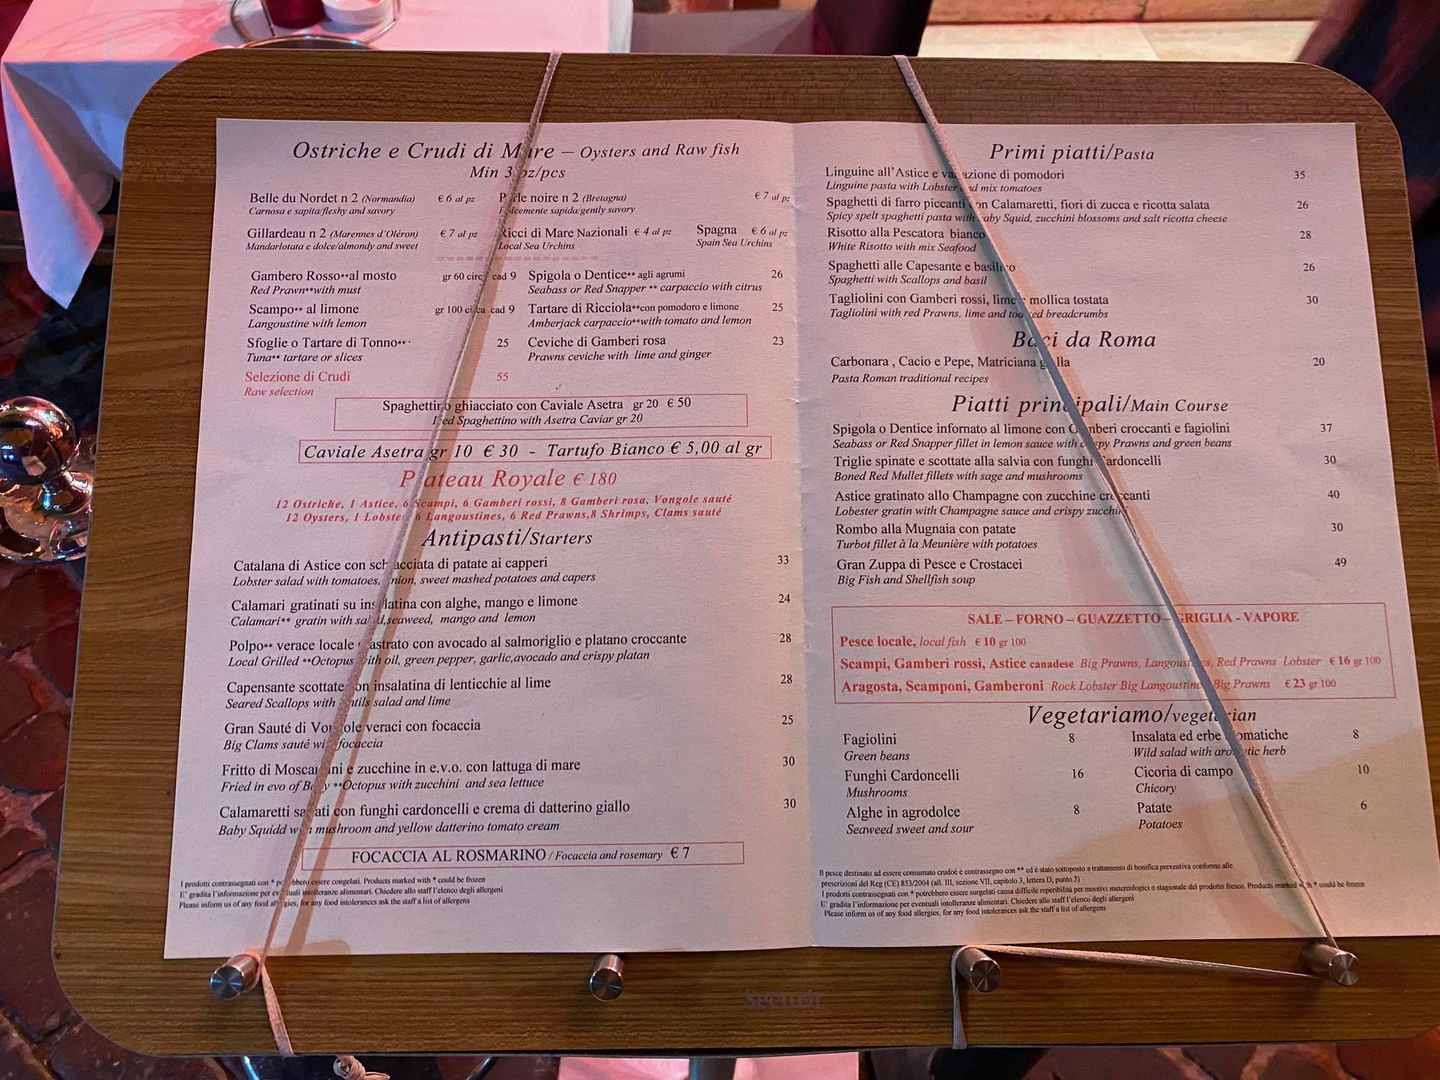 Ostriche e Crudi di Mare – Oysters and Raw fish
Min 3 pz/pcs
Belle du Nordet n 2 (Normandia) € 6 al pz
Carnosa e sapita/fleshy and savory
Perle noire n 2 (Bretagna) € 7 al pz
sapida/gently savory
Gillardeau n 2 (Marennes d'Oléron) € 7 al pz
Mandarlotata e dolce/almondy and sweet
Ricci di Mare Nazionali € 4 al pz
Local Sea Urchins
Spagna € 6 al pz
Spain Sea Urchins
Gambero Rosso**al mosto gr 60 circa cad 9
Red Prawn**with must
Spigola o Dentice** agli agrumi 26
Seabass or Red Snapper ** carpaccio with citrus
Scampo** al limone gr 100 circa cad 9
Langoustine with lemon
Tartare di Ricciola**con pomodoro e limone 25
Amberjack carpaccio**with tomato and lemon
Sfoglie o Tartare di Tonno** 25
Tuna** tartare or slices
Ceviche di Gamberi rosa 23
Prawns ceviche with lime and ginger
Selezione di Crudi 55
Raw selection
Spaghettino ghiacciato con Caviale Asetra gr 20 € 50
Iced Spaghettino with Asetra Caviar gr 20
Caviale Asetra gr 10 € 30 - Tartufo Bianco € 5,00 al gr
Plateau Royale € 180
12 Ostriche, 1 Astice, 6 Scampi, 6 Gamberi rossi, 8 Gamberi rosa, Vongole sauté
12 Oysters, 1 Lobster, 6 Langoustines, 6 Red Prawns,8 Shrimps, Clams sauté
Antipasti/Starters
Catalana di Astice con schiacciata di patate ai capperi 33
Lobster salad with tomatoes, onion, sweet mashed potatoes and capers
Calamari gratinati su insalatina con alghe, mango e limone 24
Calamari** gratin with salad,seaweed, mango and lemon
Polpo** verace locale piastrato con avocado al salmoriglio e platano croccante 28
Local Grilled **Octopus with oil, green pepper, garlic,avocado and crispy platan
Capensante scottate con insalatina di lenticchie al lime 28
Seared Scallops with lentils salad and lime
Gran Sauté di Vongole veraci con focaccia 25
Big Clams sauté with focaccia
Fritto di Moscardini e zucchine in e.v.o. con lattuga di mare 30
Fried in evo of Baby **Octopus with zucchini and sea lettuce
Calamaretti saltati con funghi cardoncelli e crema di datterino giallo 30
Baby Squidd with mushroom and yellow datterino tomato cream
FOCACCIA AL ROSMARINO / Focaccia and rosemary € 7
I prodotti contrassegnati con * potrebbero essere congelati. Products marked with * could be frozen
E' gradita l'informazione per eventuali intolleranze alimentari. Chiedere allo staff l'elenco degli allergeni
Please inform us of any food allergies, for any food intolerances ask the staff a list of allergens
Primi piatti/Pasta
Linguine all'Astice e variazione di pomodori 35
Linguine pasta with Lobster and mix tomatoes
Spaghetti di farro piccanti con Calamaretti, fiori di zucca e ricotta salata 26
Spicy spelt spaghetti pasta with baby Squid, zucchini blossoms and salt ricotta cheese
Risotto alla Pescatora bianco 28
White Risotto with mix Seafood
Spaghetti alle Capesante e basilico 26
Spaghetti with Scallops and basil
Tagliolini con Gamberi rossi, lime e mollica tostata 30
Tagliolini with red Prawns, lime and toasted breadcrumbs
Baci da Roma
Carbonara , Cacio e Pepe, Matriciana gialla 20
Pasta Roman traditional recipes
Piatti principali/Main Course
Spigola o Dentice infornato al limone con Gamberi croccanti e fagiolini 37
Seabass or Red Snapper fillet in lemon sauce with crispy Prawns and green beans
Triglie spinate e scottate alla salvia con funghi Cardoncelli 30
Boned Red Mullet fillets with sage and mushrooms
Astice gratinato allo Champagne con zucchine croccanti 40
Lobester gratin with Champagne sauce and crispy zucchini
Rombo alla Mugnaia con patate 30
Turbot fillet à la Meunière with potatoes
Gran Zuppa di Pesce e Crostacei 49
Big Fish and Shellfish soup
SALE – FORNO – GUAZZETTO – GRIGLIA - VAPORE
Pesce locale, local fish € 10 gr 100
Scampi, Gamberi rossi, Astice canadese Big Prawns, Langoustines, Red Prawns Lobster € 16 gr 100
Aragosta, Scamponi, Gamberoni Rock Lobster Big Langoustine Big Prawns € 23 gr 100
Vegetariamo/vegetarian
Fagiolini 8
Green beans
Insalata ed erbe aromatiche 8
Wild salad with aromatic herb
Funghi Cardoncelli 16
Mushrooms
Cicoria di campo 10
Chicory
Alghe in agrodolce 8
Seaweed sweet and sour
Patate 6
Potatoes
Il pesce destinato ad essere consumato crudoè è contrasegno con ** ed è stato sottoposto a trattamento di bonifica preventiva conforme alle
prescrizioni del Reg (CE) 853/2004 (all. III, sezione VII, capitolo 3, lettera D, punto 3)
I prodotti contrassegnati con * potrebbero essere surgelati causa difficile reperibilità per motivi metereologici o stagionale del prodotto fresco. Products marked with * could be frozen
E' gradita l'informazione per eventuali intolleranze alimentari. Chiedere allo staff l'elenco degli allergeni
Please inform us of any food allergies, for any food intolerances ask the staff a list of allergens
Securit